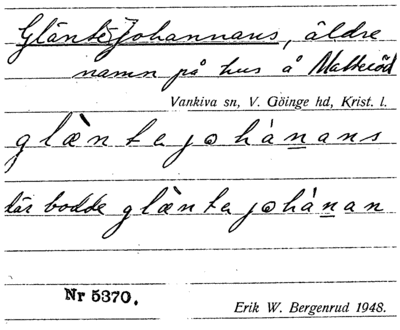 Gläntejohannans, äldre
namn på hus å Matteröd
Vankiva sn, V. Göinge hd, Krist. l.
glæ̀nta johánans
där bodde glæ̀nta johánan
Nr 5370.
Erik W. Bergenrud 1948.